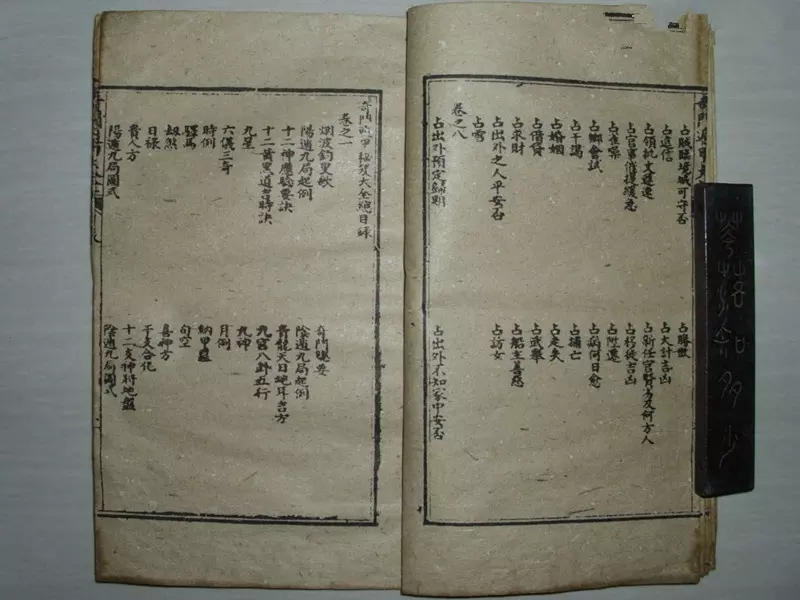 占賊臨境城可守否 占勝敗
占遠信 占大計吉凶
占領批文遲速 占新任官賢否及何方人
占官事催提緩急 占移徙吉凶
占陞遷
占鄉會試 占病何日愈
占干謁 占捕亡
占婚姻 占走失
占借貸 占武舉
占求財 占船主善惡
占出外之人平安否 占訪友
占雪
卷之八
占出外預定歸期 占出外不知家中安否
奇門遁甲秘笈大全總目錄
卷之一
烟波釣叟歌 奇門要
陽遁九局起例 陰遁九局起例
十二神應驗要訣 青龍天目地耳吉方
十二黃黑道吉時訣 九宮八卦五行
九星 九神
六儀三奇 月例
時例 納甲
驛馬 旬空
劫煞 喜神方
日祿 干支合化
貴人方 十二支神將地盤
陽遁九局圖式 陰遁九局圖式
花落知多少